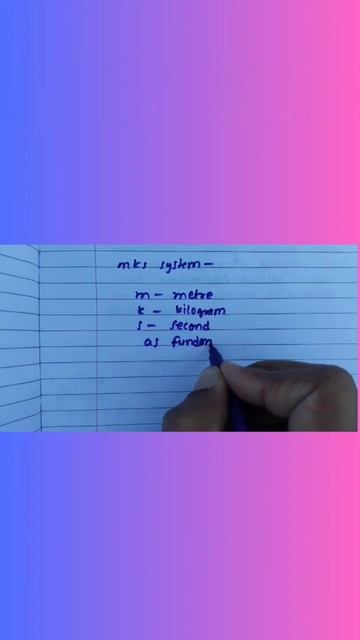 mks system -
m - metre
k - kilogram
s - second
as fundam